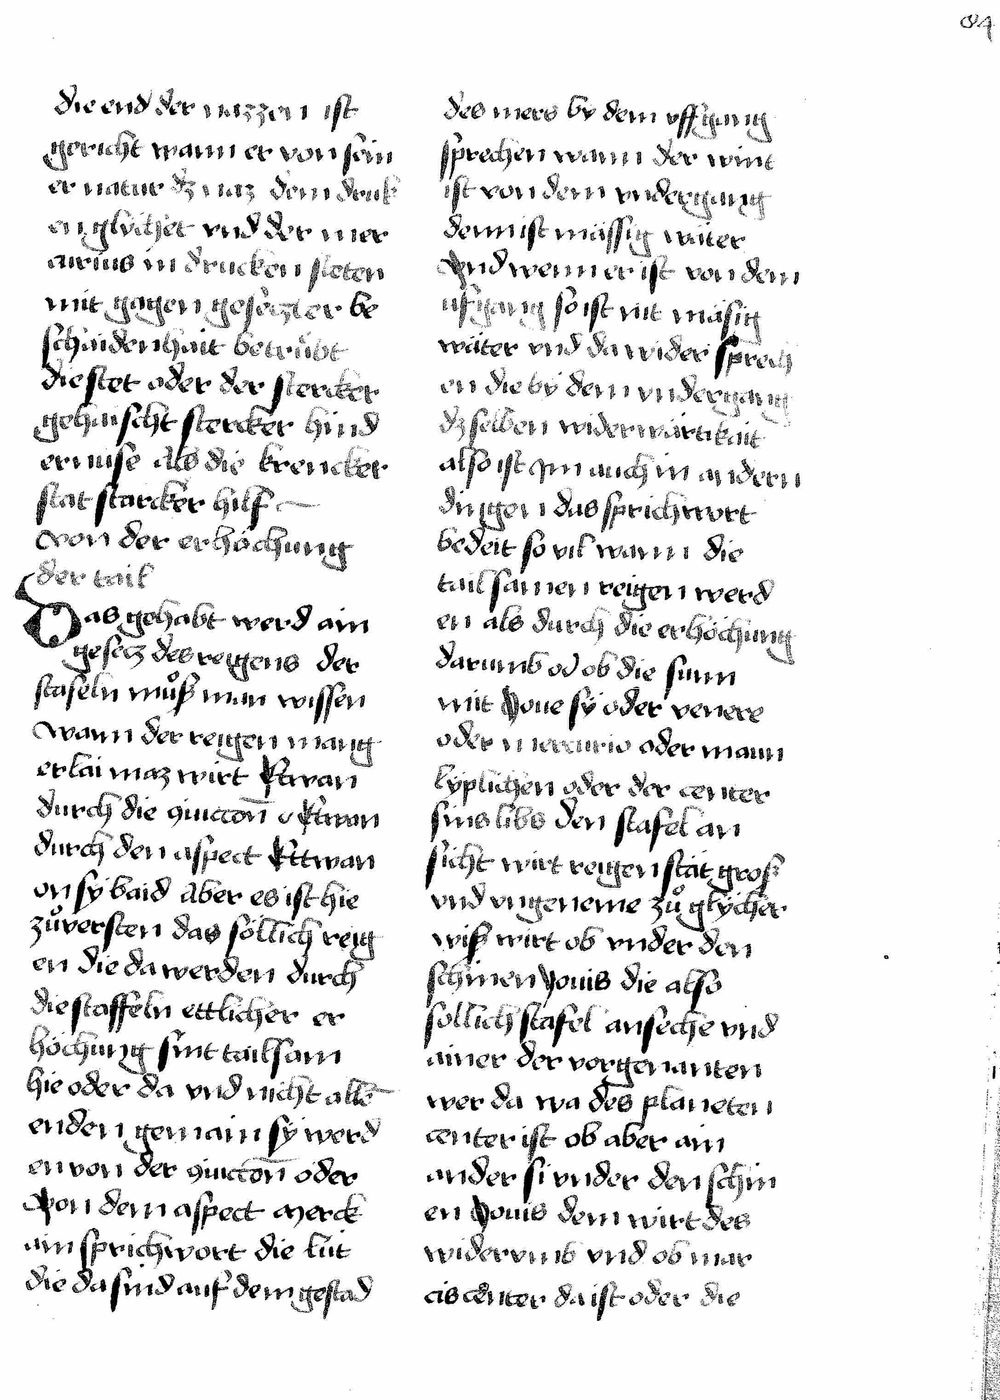 84
die end der nazzen ist
gericht wann er von sein
er natur dz naz dem druk
en glichet vnd der mer
curius in drucken steten
mit gagen gesetzter be
schaidenhait betrübt
die stet oder der stercker
gehaischt stercker hind
ernuse als die krencker
stat starcker hilf
von der erhöchung
der tail
Das gehabt werd ain
gesetz des reigens der
stafeln muͦß man wissen
wann der reigen mang
erlai maz wirt Ettwan
durch die 9iuccōn o Ettwan
durch den aspect Ettwan
on sy baid Aber es ist hie
zuͦversten das söllich reig
en die da werden durch
die staffeln ettlicher er
höchung sint tailsam
hie oder da vnd nicht allē
enden gemain sy werd
en von der 9iuccōn oder
Von dem aspect Merck
ain sprichwort die lüt
die da sind auf dem gestad
des mers by dem vffgang
sprechen wann der wint
ist von dem vndergang
denn ist mässig wäter
Vnd wenn er ist von dem
ufgang so ist nit mäsig
wäter vnd da wider sprech
en die by dem vndergang
dz selben widerwärtikait
also ist Im auch in andern
dingen das sprichwort
bedeit so vil wann die
tailsamen reigen werd
en als durch die erhöchung
darumb od ob die sunn
mit Joue sy oder venere
oder mercurio oder mann
lyplichen oder der center
sins libs den stafel an
sicht wirt reigen stät groß
vnd vngeneme zuͦ glycher
wiß wirt ob vnder den
schinen Jouis die also
sollich stafel anseche vnd
ainer der vorgenanten
wer da wa des planeten
center ist ob aber ain
ander si vnder den schin
en Jouis dem wirt des
widerumb vnd ob mar
cis center da ist oder die